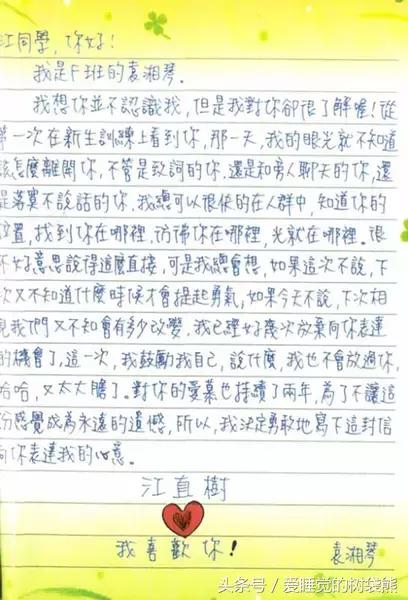 江同學，你好！
我是F班的袁湘琴。
我想你並不認識我，但是我對你卻很了解喔！從
第一次在新生訓練上看到你，那一天，我的眼光就不知道
該怎麼離開你，不管是致詞的你，還是和旁人聊天的你，還
是落寞不說話的你，我總可以很快的在人群中，知道你的
位置，找到你在哪裡，彷彿你在哪裡，光就在哪裡。很
不好意思說得這麼直接，可是我總會想，如果這次不說，下
次又不知道什麼時候才會提起勇氣，如果今天不說，下次相
見我們又不知會有多少改變，我已經好幾次放棄向你表達
的機會了，這一次，我鼓勵我自己，說什麼，我也不會放過你，
哈哈，又太大膽了。對你的愛慕也持續了兩年，為了不讓這
份感覺成為永遠的遺憾，所以，我決定勇敢地寫下這封信
向你表達我的心意。
江直樹
我喜歡你！
袁湘琴
头条号 / 爱睡觉的树袋熊